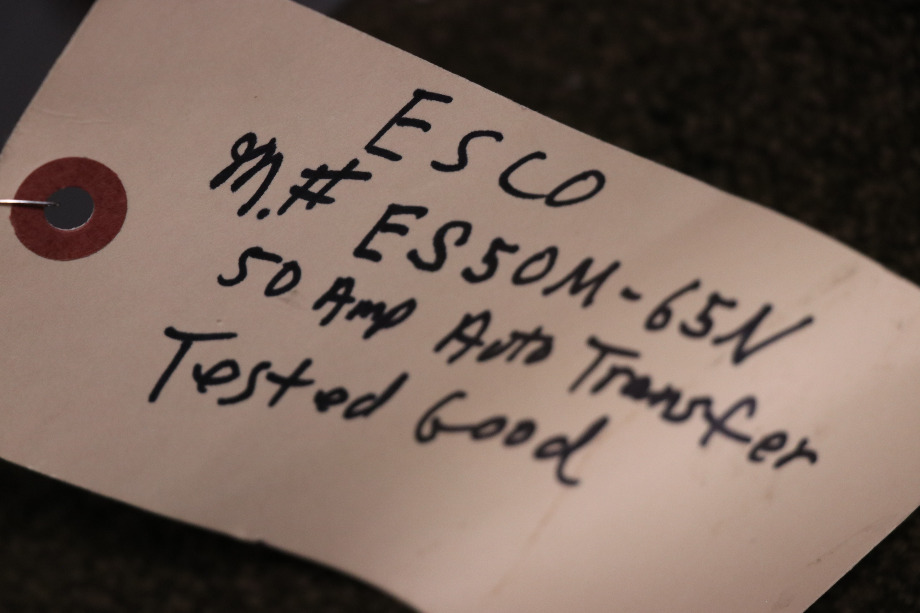 ESCO
M.# ES50M-65N
50 Amp Auto Transfer
Tested Good